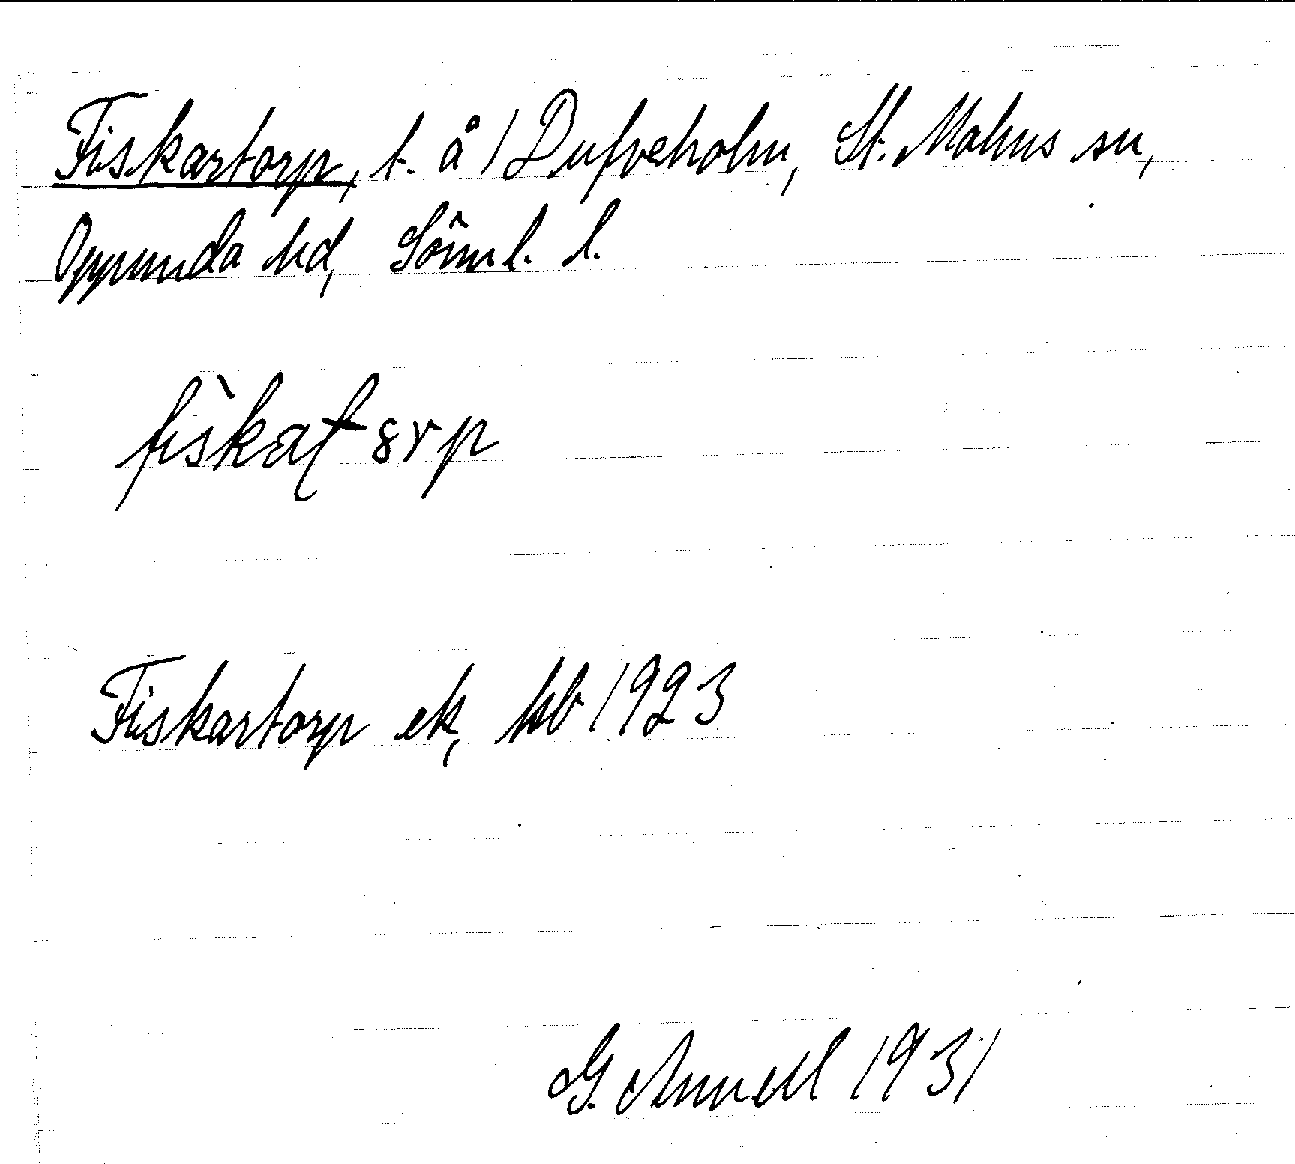 Fiskartorp, t. å 1 Dufveholm, St. Malms sn,
Oppunda hd, Söml. l.
fìskat̠ srp
Fiskartorp ek, kb 1923
G. Annell 1931